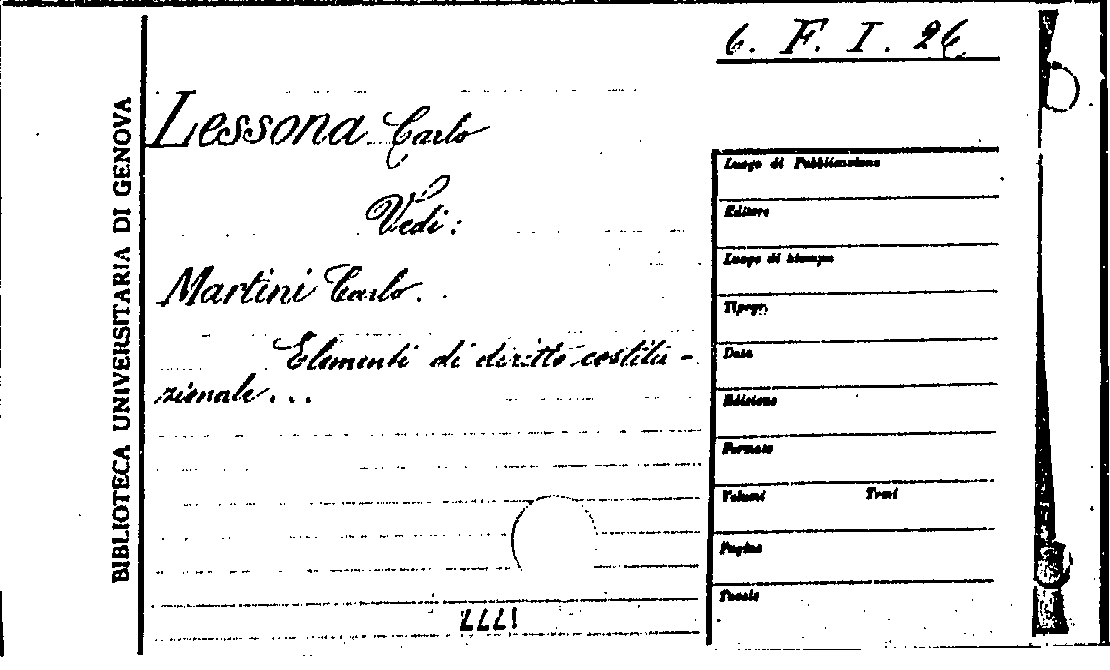 6. F. I. 26
Lessona Carlo
Vedi:
Martini Carlo.
Elementi di diritto costitu-
zionale...
BIBLIOTECA UNIVERSITARIA DI GENOVA
Luogo di Pubblicazione
Editore
Luogo di stampa
Tipogr.
Data
Edizione
Formato
Volumi Tomi
Pagine
Tavole